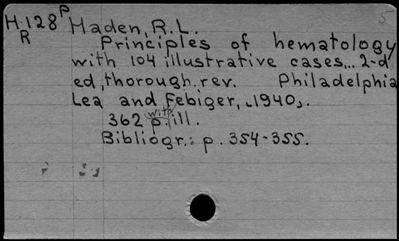 H.128 P Haden, R.L.
R
Principles of hematology
with 104 illustrative cases... 2-d
ed, thorough. rev. Philadelphia
Lea and Febiger, [1940].
362 p. with ill.
Bibliogr.: p. 354-355.